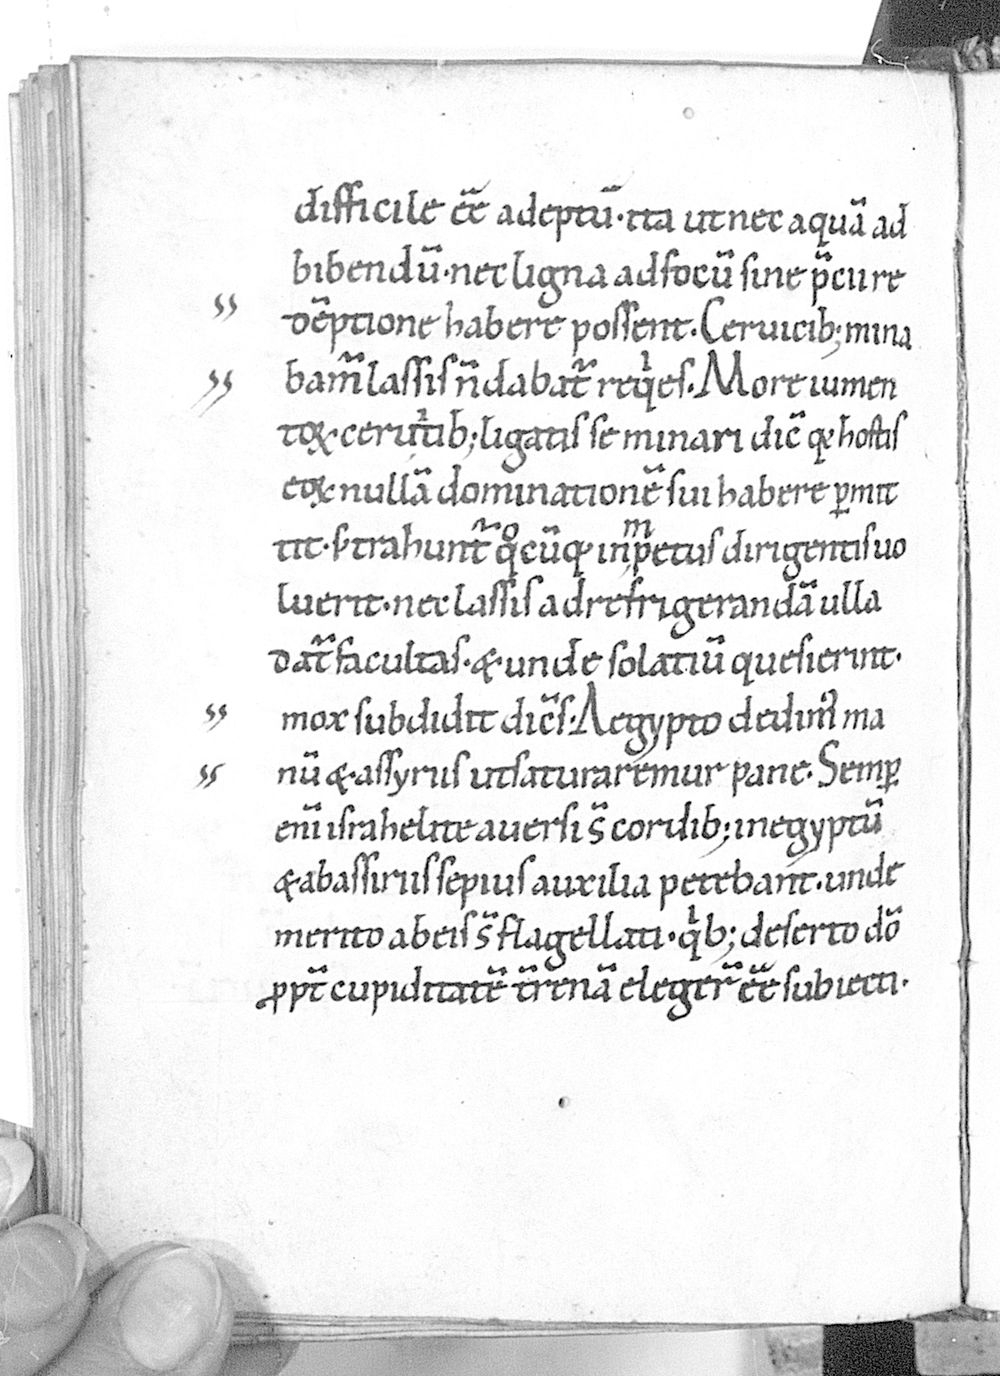 difficile ee̅ adeptū· ita ut nec aquā ad
bibendū· nec ligna ad focū sine p̄ciI re
dēptione habere possent. Ceruicib; mina
bam̄ lassis n̄ dabat̄ reqͥes. More iumen
toꝝ ceruͥtib; ligatis se minari dic̄ qꝫ hostis
eoꝝ nullā dominationē sui habere ꝑmit
tit· s; trahunt̄ qͦcūqꝫ inpetus dirigentis uo
luerit· nec lassis ad refrigerandā ulla
dat̄ facultas· & unde solatiū quesierint·
mox subdidit dic̄s· Aegypto dedim᷒ ma
nū & assyriis ut saturaremur pane· Semꝑ
eni̅ israhelite auersis̄ cordib; in egyptū
& ab assiriis sepius auxilia petebant· unde
merito ab eis s̄ flagellati· qͥb; deserto dō
ꝓpt̄ cupiditatē t̄renā eleger̄ ee̅ subiecti·